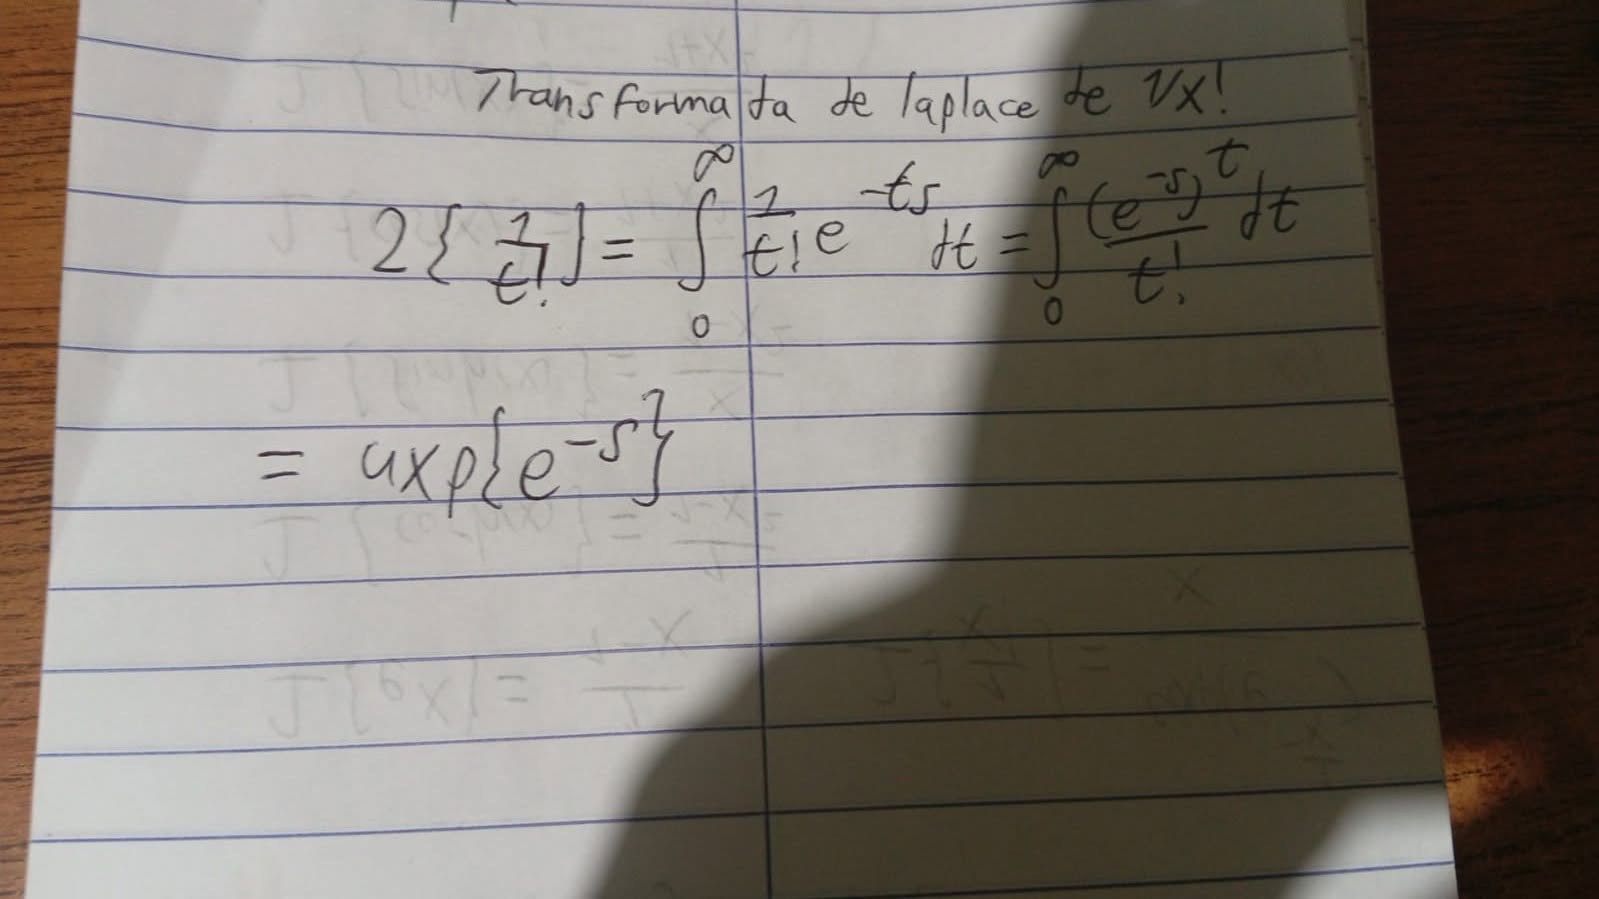 Transformada de laplace de 1/x!
L{1/t!} = ∫₀^∞ 1/t! e^-ts dt = ∫₀^∞ (e^-s)^t/t! dt
= uxp{e^-s}